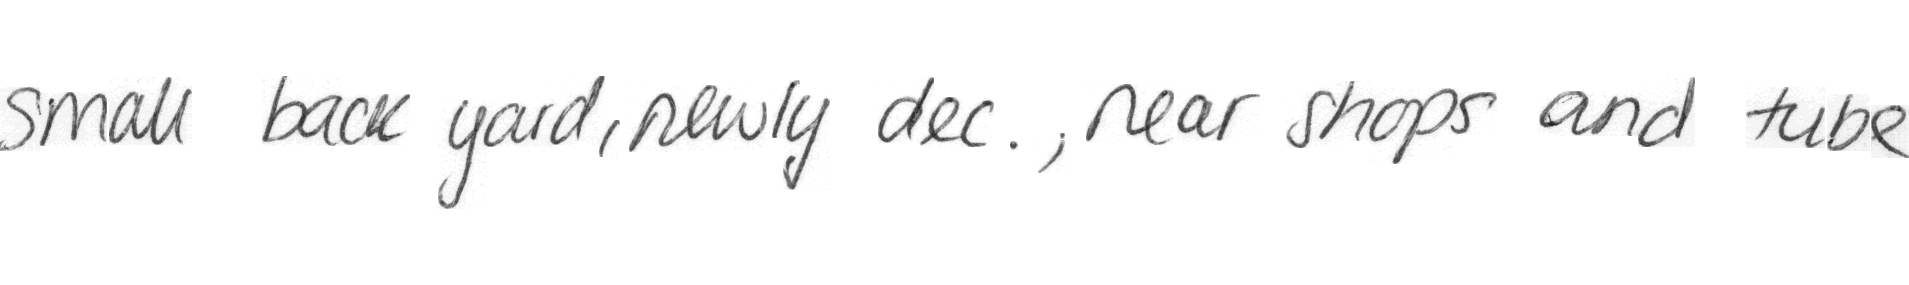 small back yard, newly dec., near shops and tube